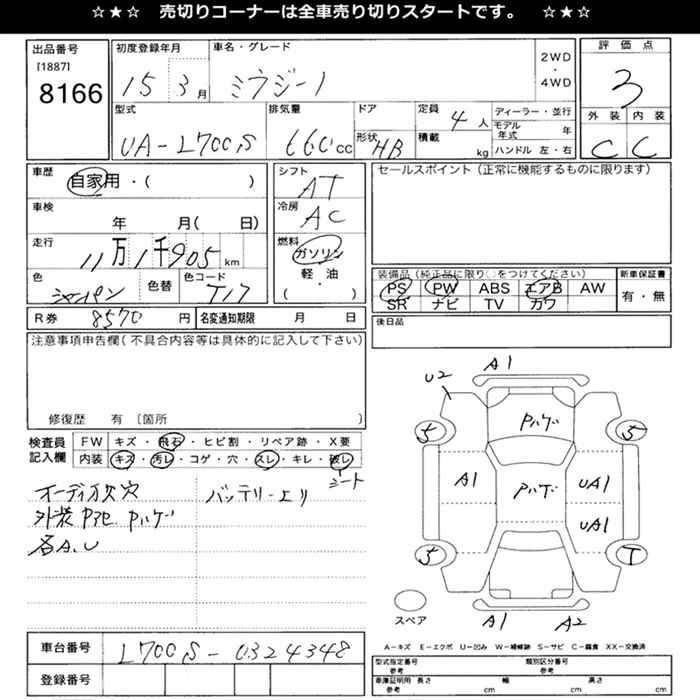 ☆★☆ 売切りコーナーは全車売り切りスタートです。 ☆★☆
出品番号
[1887]
8166
初度登録年月
15 3 月
車名・グレード
ミラジーノ
2WD
・
4WD
評価点
3
外装 内装
C C
型式
UA-L700S
排気量
660 cc
ドア
形状 HB
定員 4 人
積載 kg
ディーラー・並行
モデル年式 年
ハンドル 左・右
車歴
自家用・( )
車検
年 月( 日)
走行
11万1千905 km
色
シャンパン
色替
色コード
T17
シフト
AT
冷房
AC
燃料
ガソリン
軽・油
( )
セールスポイント(正常に機能するものに限ります)
装備品(純正品に限り○をつけてください)
PS PW ABS エアB AW
SR ナビ TV カワ
新車保証書
有・無
R券 8570 円
名変通知期限 月 日
後日品
注意事項申告欄(不具合内容等は具体的に記入して下さい)
修復歴 有 〔箇所
検査員
記入欄
FW キズ・飛石・ヒビ割・リペア跡・X要
内装 キズ・汚レ・コゲ・穴・スレ・キレ・破レ
シート
オーディオ欠穴
バッテリー上り
外装 Pハゲ
各A.U
U2
A1
Pハゲ
5
5
A1
Pハゲ
UA1
UA1
5
T
スペア
A1
A2
A-キズ E-エクボ U-凹み W-補修跡 S-サビ C-腐食 XX-交換済
車台番号 L700S-0324348
登録番号
型式指定番号 類別区分番号
参考 参考
車庫証明用 長さ 幅 高さ
参考 cm cm cm